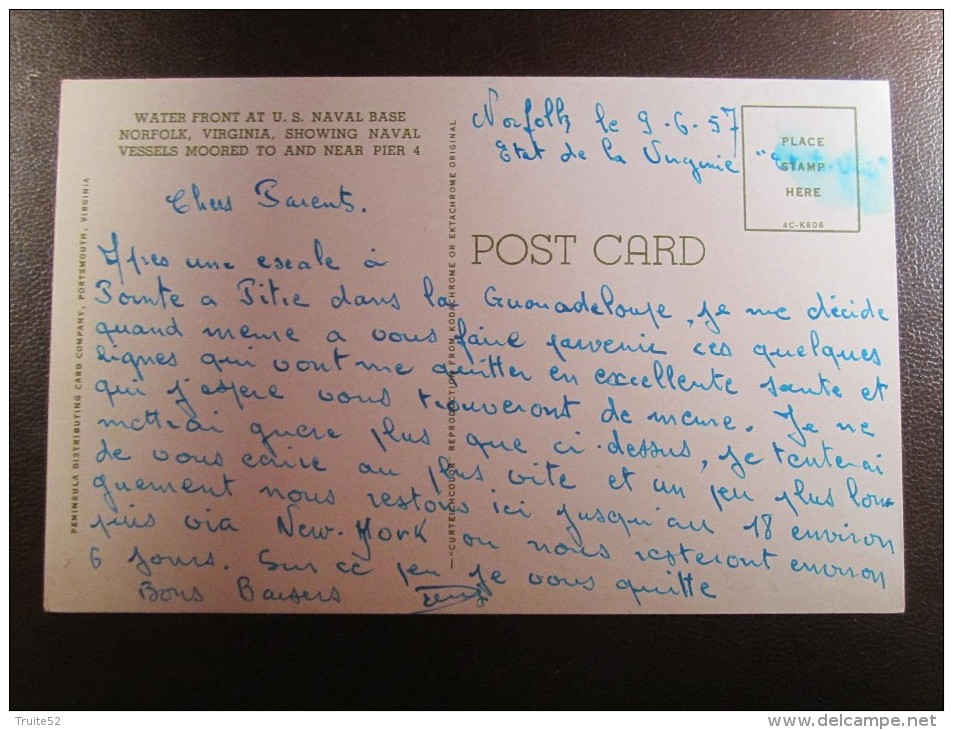 WATER FRONT AT U. S. NAVAL BASE
NORFOLK, VIRGINIA, SHOWING NAVAL
VESSELS MOORED TO AND NEAR PIER 4
PENINSULA DISTRIBUTING CARD COMPANY, PORTSMOUTH, VIRGINIA
—"CURTEICHCOLOR" REPRODUCTION FROM KODACHROME OR EKTACHROME ORIGINAL
Norfolk le 9.6.57
Etat de la Virginie
PLACE
STAMP
HERE
4C-K606
POST CARD
Chers Parents.
Apres une escale à
Pointe a Pitre dans la Guouadeloupe, je me décide
quand meme a vous faire parvenir ces quelques
lignes qui vont me quitter en excellente sante et
qui j'espere vous trouveront de meme. Je ne
mettrai guere plus que ci-dessus, je tenterai
de vous ecrire au plus vite et un peu plus lon-
guement nous restons ici jusqu'au 18 environ
puis via New-York ou nous resteront environ
6 jours. Sur ce peu je vous quitte
Bons Baisers
Truite52
http://www.delcampe.net